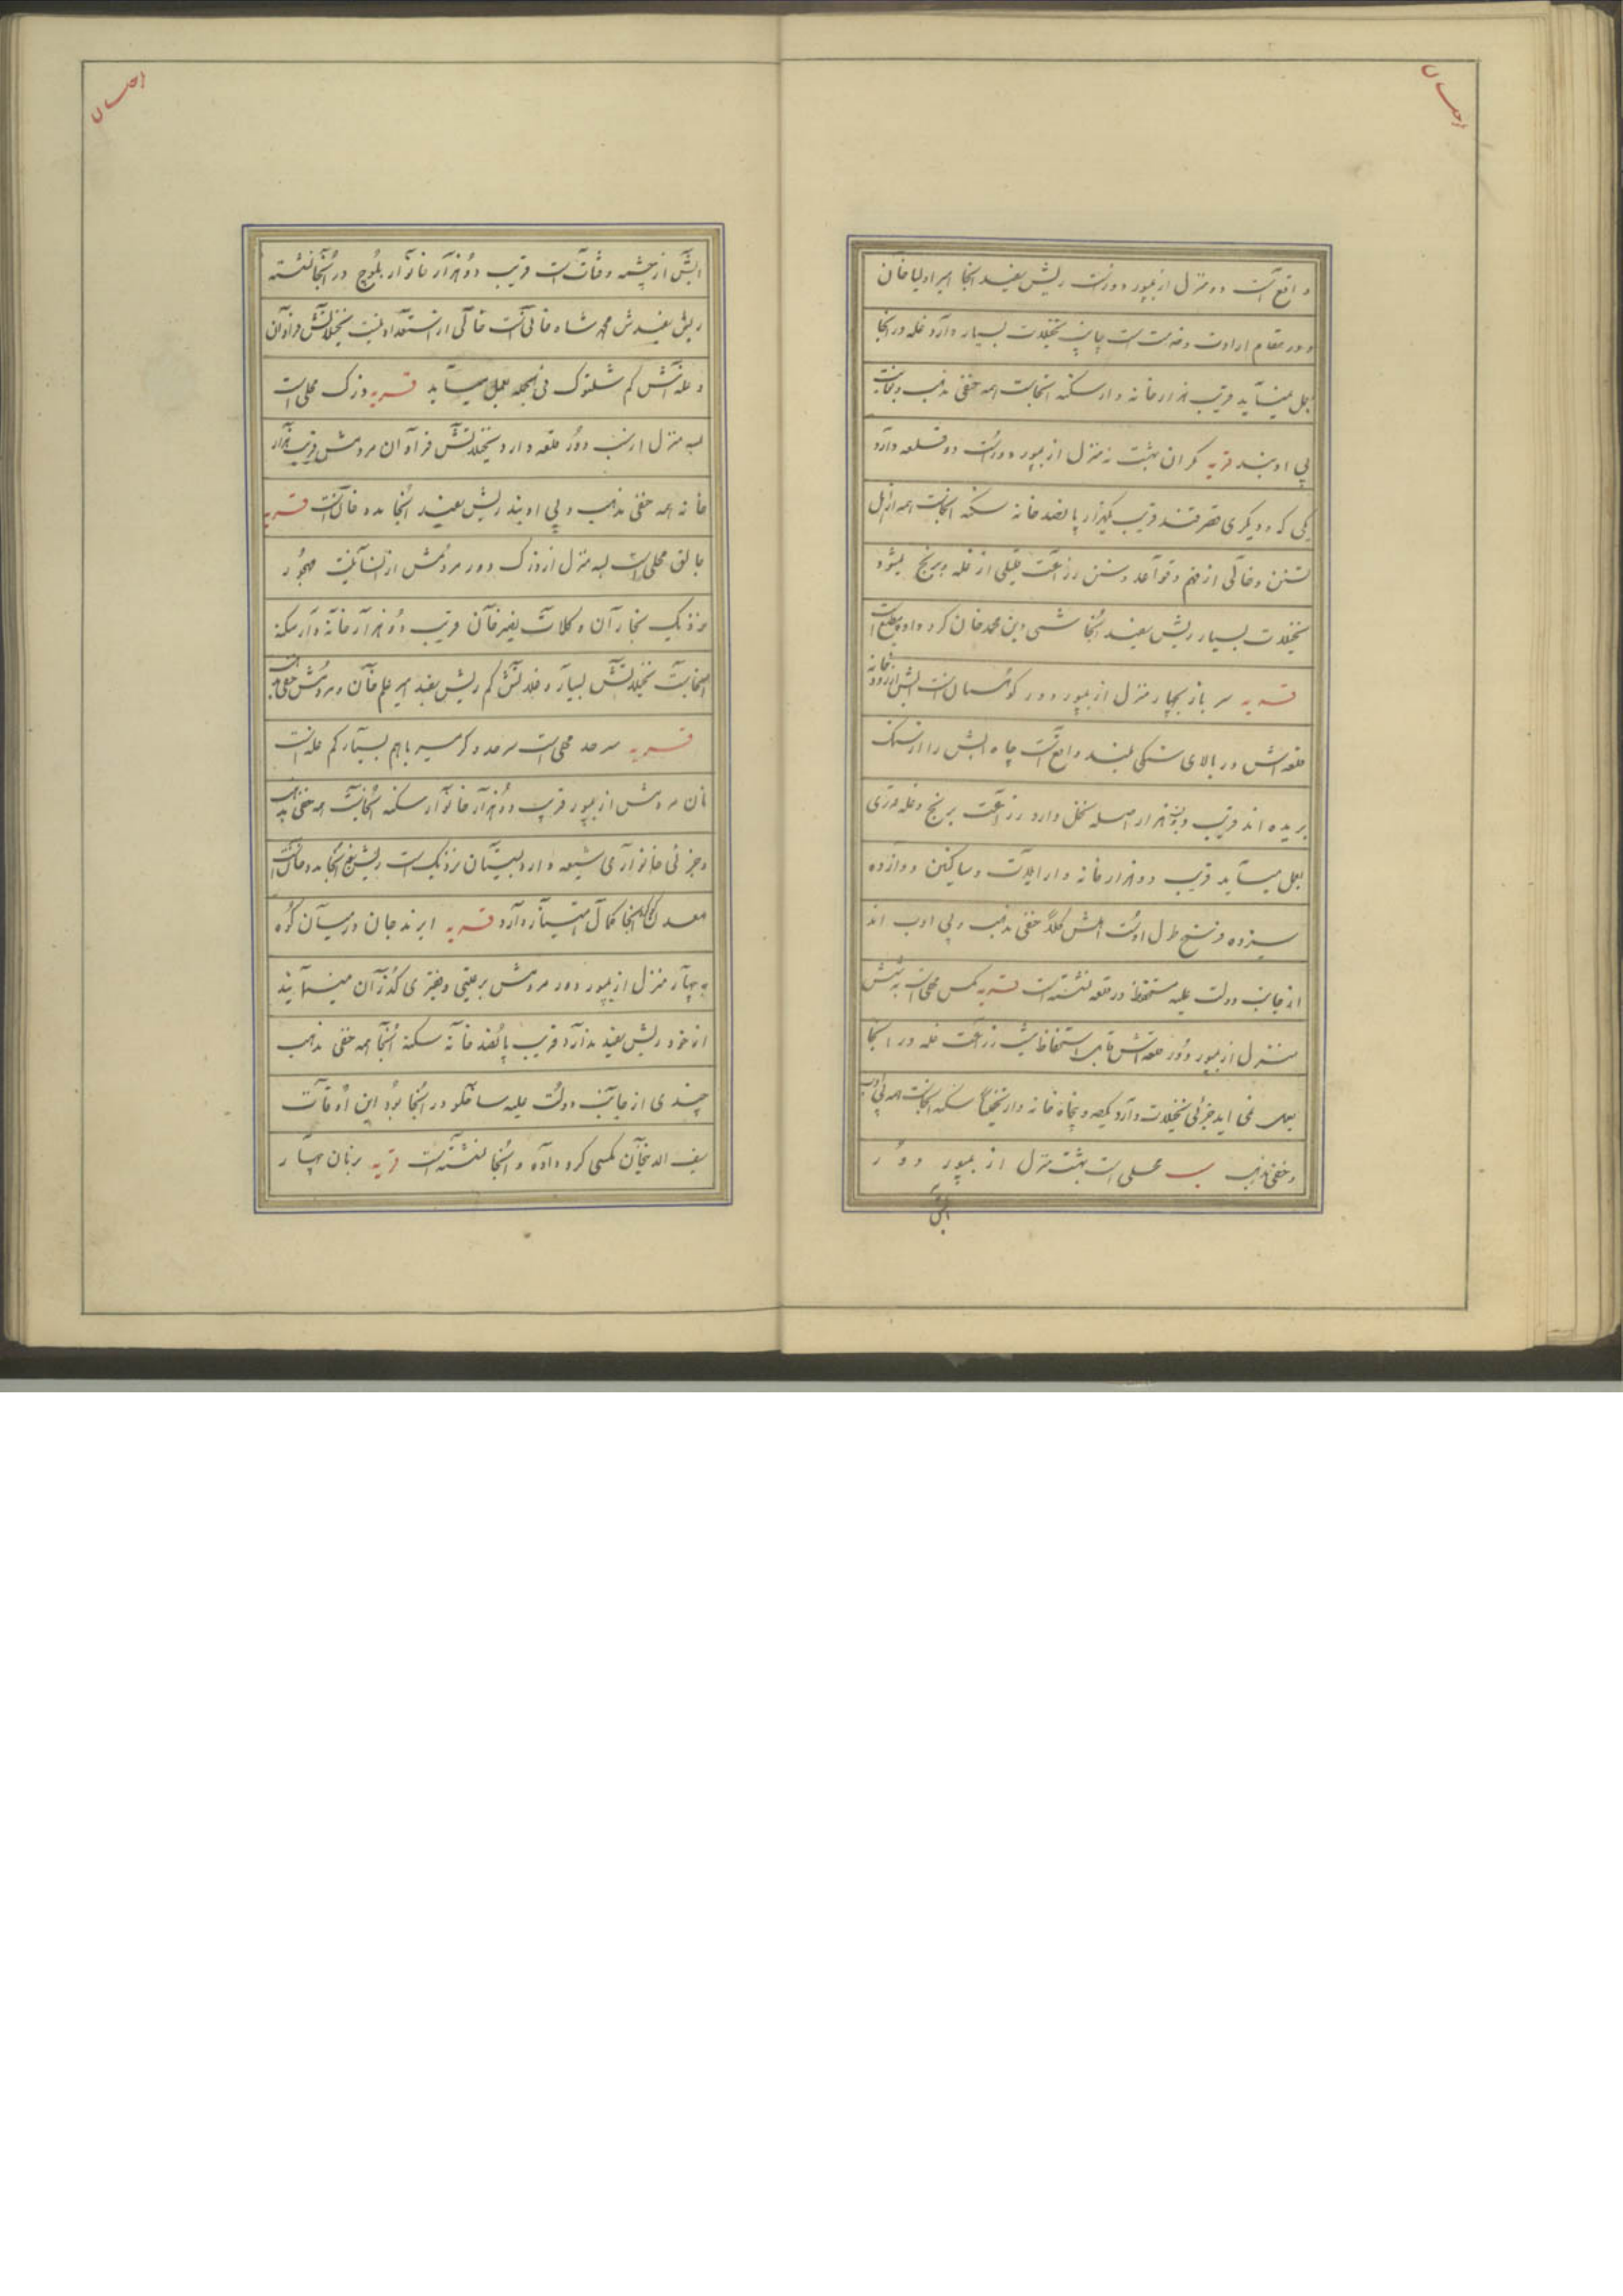 واقع است دو منزل از بمپور دور است ریش سفید آنجا امیر اولیا خان
و در مقام ارادت و خدمت است چانپ نخیلات بسیار دارد غله در آنجا
بعمل میآید قریب هزار خانه دار سکنه آنجاست همه حنفی مذهب و بغایت
بی ادبند قریه مکران بهشت نه منزل از بمپور دور است دو قلعه دارد
یکی که و دیگری قصر قند قریب یکهزار پانصد خانه سکنه آنجاست همه از اهل
تسنن و خالی از فهم و قواعد و سنن زراعت قلیلی از غله و برنج میشود
نخیلات بسیار ریش سفید آنجا شسی دین محمد خان کرد داده مطیع است
قریه سرباز بچهار منزل از بمپور دور کوهستان است آبش از رودخانه
قلعه اش در بالای سنگی بلند واقع است چاه آبش را از سنگ
بریده اند قریب دویست هزار اصله نخل دارد زراعت برنج و غله و ذرتی
بعمل میآید قریب دو هزار خانه دار ایلات و ساکنین دوازده
سیزده فرسخ طول اوست اهلش کلاً حنفی مذهب و بی ادب اند
از جانب دولت علیه مستحفظ در قلعه نشسته است قریه کس محلی است به شش
منزل از بمپور دور قلعه اش قابل استحفاظ نیست زراعت غله در آنجا
بعمل نمی آید جزئی نخیلات دارد یکصد و پنجاه خانه دار تخمیناً سکنه آنجاست همه بی ادب
و حنفی مذهب سب محلی است بهشت منزل از بمپور دور
آبش
آبش از چشمه و قنات است قریب دو هزار خانوار بلوچ در آنجا نشسته
ریش سفیدش محمد شاه خانی است خالی از استعداد نیست نخیلاتش فراوان
و غله اش کم شلتوک فی الجمله بعمل میآید قریه دزک محلی است
بسه منزل از سب دور قلعه دارد نخیلاتش فراوان مردمش قریب هزار
خانه همه حنفی مذهب و بی ادبند ریش سفید آنجا مدد خان است قریه
جالق محلی است بسه منزل از دزک دور مردمش از انسانیت مهجور
نزدیک بخاران و کلات نصیرخان قریب دو هزار خانه دار سکنه
آنجاست نخیلاتش بسیار و غلاتش کم ریش سفید امیر علم خان و مردمش حنفی مذهب
قریه سرحد محلی است سرحد و گرمسیر باهم بسیار کم غله است
نان مردمش از بمپور قریب دو هزار خانوار سکنه آنجاست همه حنفی مذهب
و جزئی خانواری شیعه دارد بسیستان نزدیک است ریش سفید آنجا مدد خان است
معدن آنجا کمال امتیاز دارد قریه ایرندجان در میان کوه
به چهار منزل از بمپور دور مردمش برعیتی و فقیری گذران مینمایند
از خود ریش سفید ندارد قریب پانصد خانه سکنه آنجا همه حنفی مذهب
چندی از جانب دولت علیه ساخلو در آنجا بود این اوقات
سیف الله خان تمکین کرد داده و آنجا ننشسته است قریه بزمان چهار
احسان
احسان